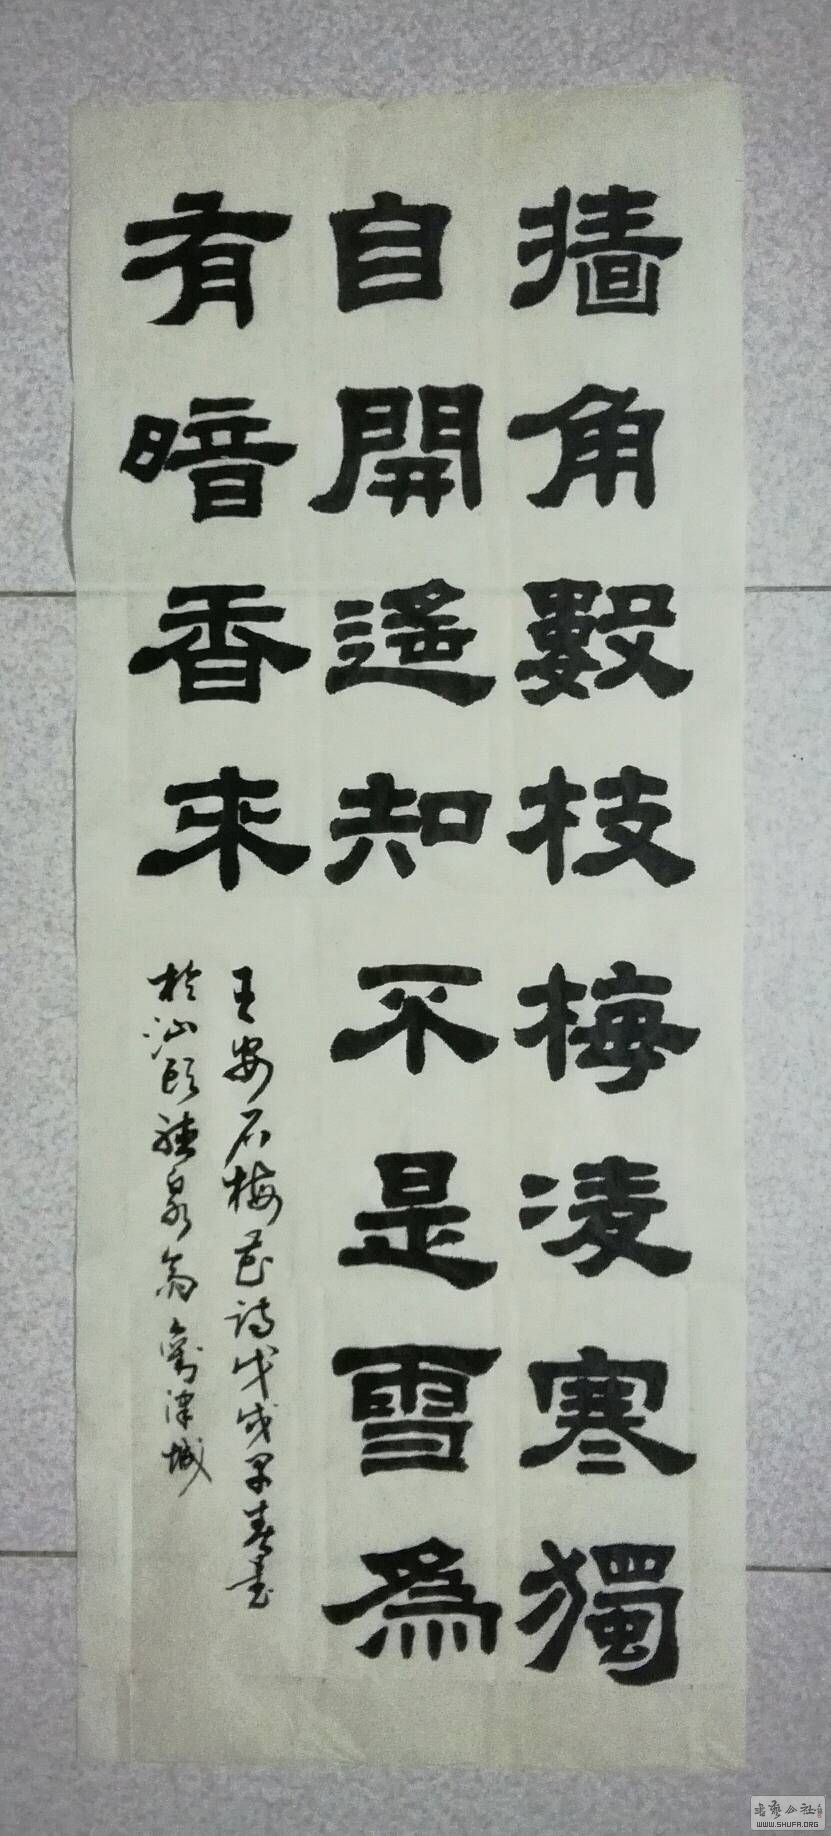 墙角數枝梅凌寒獨
自開遙知不是雪為
有暗香来
王安石梅花詩戊戌早春書
於汕頭聽泉斋劉津城
WWW.SHUFA.ORG